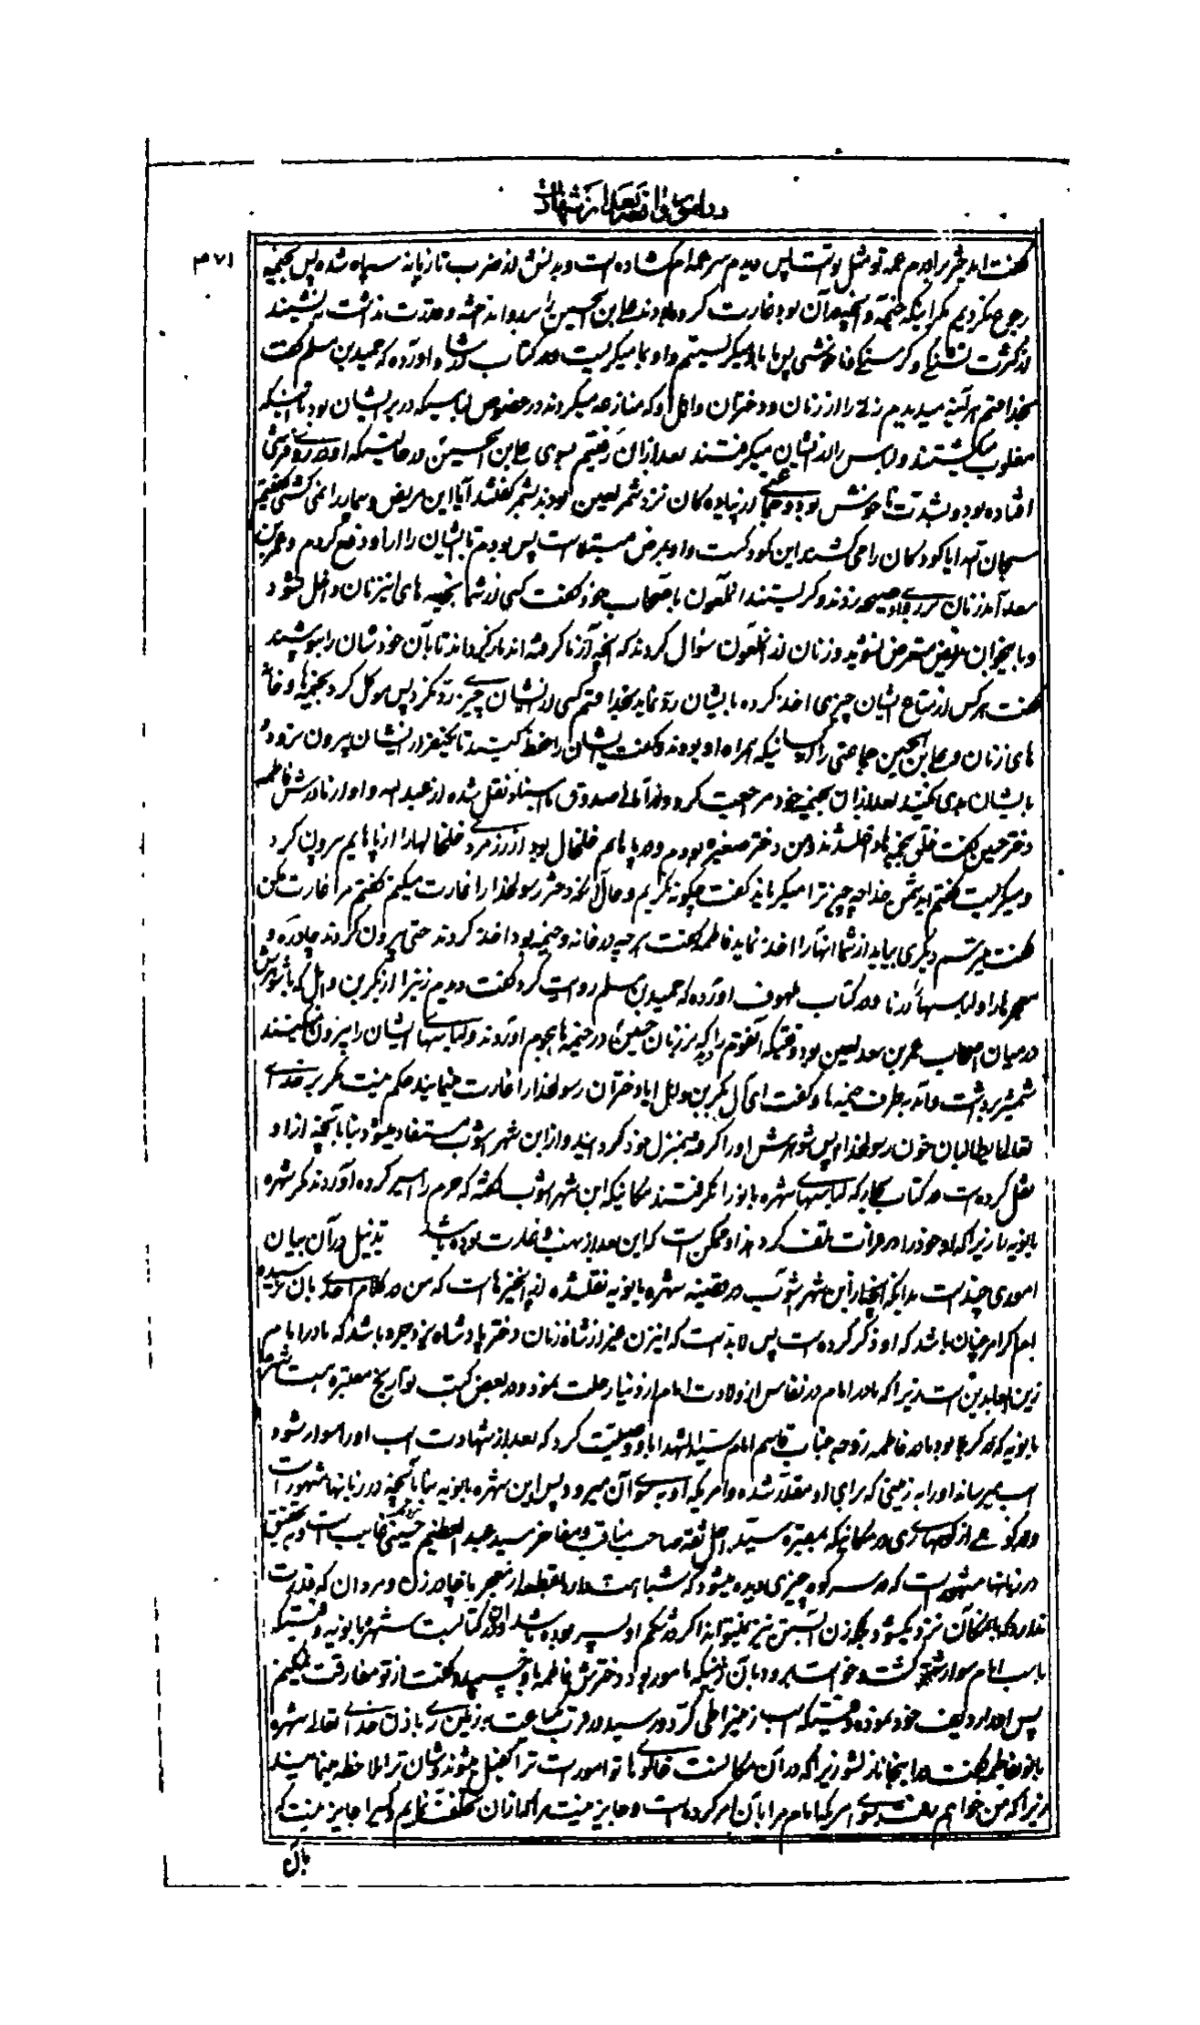 در امور واقعه بعد از شهادت
۴۷۱
گفت ای دختر برادرم عمه تو مثل تو است پس دیدم سر عمه‌ام گشاده است و بدنش از ضرب تازیانه سیاه شده پس بخیمه
رجوع نکردیم مگر اینکه خیمه و آنچه در آن بود غارت کرده بودند علی بن الحسین را برو انداخته و قدرت نداشت بنشیند
از کثرت تشنگی و گرسنگی و ناخوشی پس ما باو میگریستیم و او بما میگریست و در کتاب ارشاد آورده که حمید بن مسلم گفت
بخدا قسم هر آینه میدیدم زنی را از زنان و دختران و اهل او که منازعه میکردند در خصوص لباسیکه در بر ایشان بود تا اینکه
مغلوب میگشتند و لباس را از ایشان میگرفتند بعد از آن رفتیم بسوی علی بن الحسین در حالتیکه او در روی فرشی
افتاده بود و بشدت ناخوش بود و جماعتی از پیاده‌کان نزد شمر لعین بودند بشمر گفتند آیا این مریض و بیمار را نمی کشی گفتم
سبحان الله آیا کودکان را می کشند این کودکست و او بمرض مبتلا است پس بودم تا ایشان را از او دفع کردم و عمر بن
سعد آمد زنان بر روی او صیحه زدند و گریستند آنملعون باصحاب خود گفت کسی از شما بخیمه های این زنان داخل نشود
و باین جوان مریض متعرض نشوید و زنان از آنملعون سؤال کردند که آنچه از ما گرفته اند باز گردانند تا بآن خودشان را بپوشند
گفت هر کس از متاع ایشان چیزی اخذ کرده بایشان رد نماید بخدا قسم کسی از ایشان چیزی رد نکرد پس موکل کرد بخیمها و خانه
های زنان و علی بن الحسین جماعتی را از کسانیکه همراه او بودند و گفت ایشان را حفظ کنید تا یکنفر از ایشان بیرون نرود و
بایشان بدی نکنید بعد از آن بخیمه خود مراجعت کرد و در امالی صدوق باسناد نقل شده از عبد الله و او از مادرش فاطمه
دختر حسین گفت خلق بخیمه ما داخل شدند و من دختر صغیره بودم و در پاهایم خلخال بود از زر مردی خلخالها را از پاهایم بیرون کرد
و میگریست گفتم ای دشمن خدا چه چیز ترا میگریاند گفت چگونه نگریم و حال آنکه دختر رسولخدا را غارت میکنم گفتم مرا غارت مکن
گفت میترسم دیگری بیاید از شما آنها را اخذ نماید فاطمه گفت هر چه در خانه و خیمه بود اخذ کردند حتی بیرون کردند چادر و
معجرها را و لباسها را از ما و در کتاب ملهوف آورده که حمید بن مسلم روایت کرد گفت دیدم زنی را از بکر بن وائل که با شوهرش
در میان اصحاب عمر بن سعد لعین بود وقتیکه آنقوم را دید که بر زنان حسین در خیمه ها هجوم آوردند و لباسهای ایشان را بیرون میکنند
شمشیر برداشت و آمد بطرف خیمه ها و گفت ای آل بکر بن وائل آیا دختران رسولخدا را غارت مینمایند حکم نیست مگر بر خدای
تعالی یا طالبان خون رسولخدا پس شوهرش او را گرفته بمنزل خود گردانید و از ابن شهر آشوب مستفاد میشود بنا بآنچه از او
نقل کرده است در کتاب بحار که لباسهای شهره بانو را نگرفتند مکانیکه ابن شهر آشوب گفته که حرم را اسیر کرده آوردند مگر شهره
بانویه را زیرا که او خود را در فرات تلف کرد هذا و ممکن است که این بعد از نهب و غارت بوده باشد تذییل در آن بیان
اموری چند است بدانکه آنچه از ابن شهر آشوب در قضیه شهره بانویه نقل شده از آنچیزهاست که من در کلام احدی بآن نرسیده
ام اگر امر چنان باشد که او ذکر کرده است پس لا بد است که این زن غیر از شاه زنان دختر پادشاه یزدجرد باشد که مادر امام
زین العابدین است زیرا که مادر امام در نفاس از ولادت امام از دنیا رحلت نمود و در بعض کتب تواریخ معتبره است شهر
بانویه که در کربلا بود مادر فاطمه زوجه جناب قاسم امام سید الشهداء باو وصیت کرد که بعد از شهادت اسب او را سوار شود
اسب میرساند او را به زمینی که برای او مقدر شده و امریکه او بسوی آن میرود پس این شهره بانویه بنا بآنچه در زبانها مشهور است
در کوهی از کوههای ری در مکانیکه بمقبره سید اجل ثقه صاحب مناقب و مفاخر سید عبد العظیم حسنی قریب است و بتحقیق
در زبانها مشهور است که در سر کوه چیزی دیده میشود که شباهت دارد بقطعه از معجر یا چادر زن و مردان که قدرت
ندارد که بمکان آن نزدیک شود بلکه زن آبستن نیز نمیتواند اگر در شکم او پسر بوده باشد و در آن کتابست شهره بانویه وقتیکه
باسب امام سوار گشت و خواست برود بآن جائیکه مامور بود دخترش فاطمه باو چسبید و گفت از تو مفارقت نمیکنم
پس او را ردیف خود نموده وقتیکه اسب زمین را طی کرد و رسید در قرب یکساعت بزمین ری باذن خدای تعالی شهره
بانو بفاطمه گفت در اینجا نازل شو زیرا که در آن مکانست خالوی تو مامور است ترا کفیل میشوند و شان ترا ملاحظه مینمایند
زیرا که من خواهم رفت بسوی امریکه امام مرا بآن امر کرده است و جایز نیست مرا که از آن تخلف نمایم و کسی را جایز نیست که
بآن